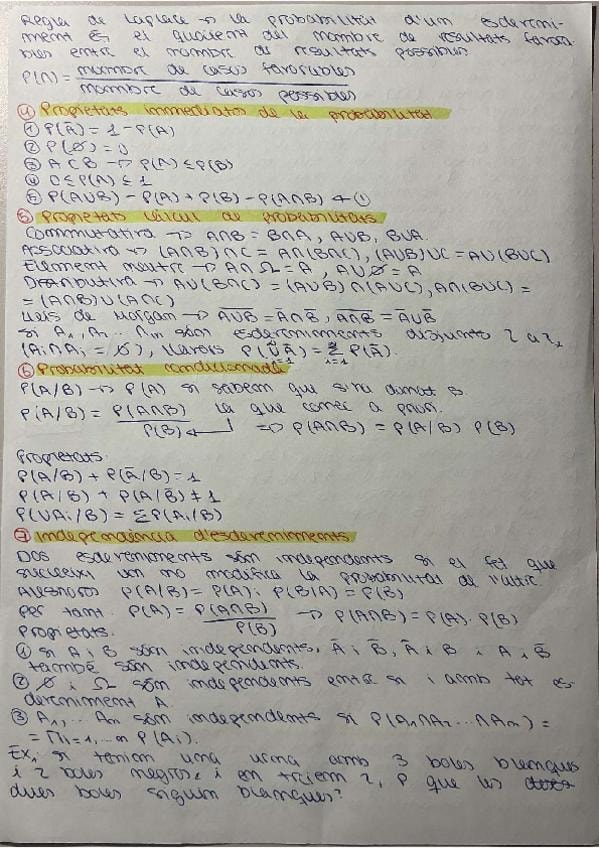 Regla de Laplace → la probabilitat d'un esdeveni-
ment és el quocient del nombre de resultats favora-
bles entre el nombre de resultats possibles
P(A) = nombre de casos favorables / nombre de casos possibles
④ Propietats immediates de la probabilitat
① P(Ā) = 1 - P(A)
② P(∅) = 0
③ A ⊂ B → P(A) ≤ P(B)
④ 0 ≤ P(A) ≤ 1
⑤ P(A∪B) = P(A) + P(B) - P(A∩B)
⑤ Propietats càlcul de probabilitats
Commutativa → A∩B = B∩A, A∪B, B∪A.
Associativa → (A∩B)∩C = A∩(B∩C), (A∪B)∪C = A∪(B∪C)
Element neutre → A∩Ω = A, A∪∅ = A
Distributiva → A∪(B∩C) = (A∪B)∩(A∪C), A∩(B∪C) =
= (A∩B)∪(A∩C)
Lleis de Morgan → A̅∪̅B̅ = Ā∩B̄, A̅∩̅B̅ = Ā∪B̄
Si A₁, A₂... Aₙ són esdeveniments disjunts 2 a 2,
(Ai∩Aj = ∅), llavors P(∪Ā) = Σ P(Ā).
⑥ Probabilitat condicionada
P(A/B) → P(A) si sabem que s'ha donat B
P(A/B) = P(A∩B) / P(B) la que conec a priori. ⇒ P(A∩B) = P(A/B) P(B)
Propietats.
P(A/B) + P(Ā/B) = 1
P(A/B) + P(A/B̄) ≠ 1
P(∪Ai/B) = ΣP(Ai/B)
⑦ Independència d'esdeveniments
Dos esdeveniments són independents si el fet que
succeeixi un no modifica la probabilitat de l'altre.
Aleshores P(A/B) = P(A); P(B/A) = P(B)
Per tant. P(A) = P(A∩B) / P(B) → P(A∩B) = P(A)·P(B)
Propietats.
① Si A i B són independents, Ā i B̄, Ā i B i A i B̄
també són independents.
② ∅ i Ω són independents entre si i amb tot es-
deveniment A.
③ A₁,... Aₙ són independents si P(A₁∩A₂...∩Aₙ) =
= Πi=1,...n P(Ai).
Ex, si tenim una urna amb 3 boles blanques
i 2 boles negres, i en traiem 2, P que les
dues boles siguin blanques?